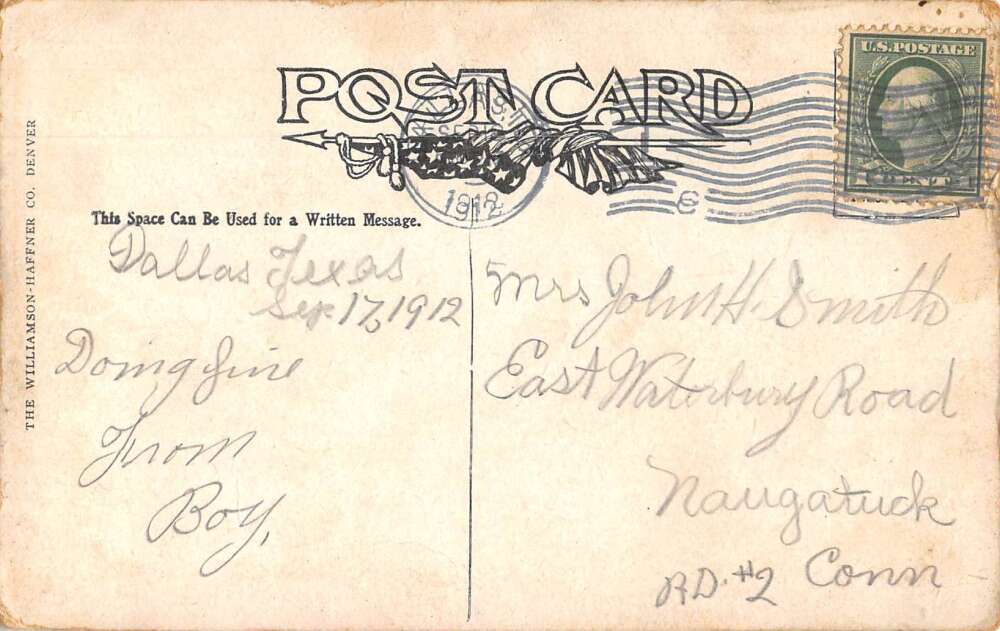 POST CARD
U.S. POSTAGE
1912
6
THE WILLIAMSON-HAFFNER CO. DENVER
This Space Can Be Used for a Written Message.
Dallas Texas
Sep. 17, 1912
Doing fine
From
Boy,
Mrs John H. Smith
East Waterbury Road
Naugatuck
RD. #2 Conn